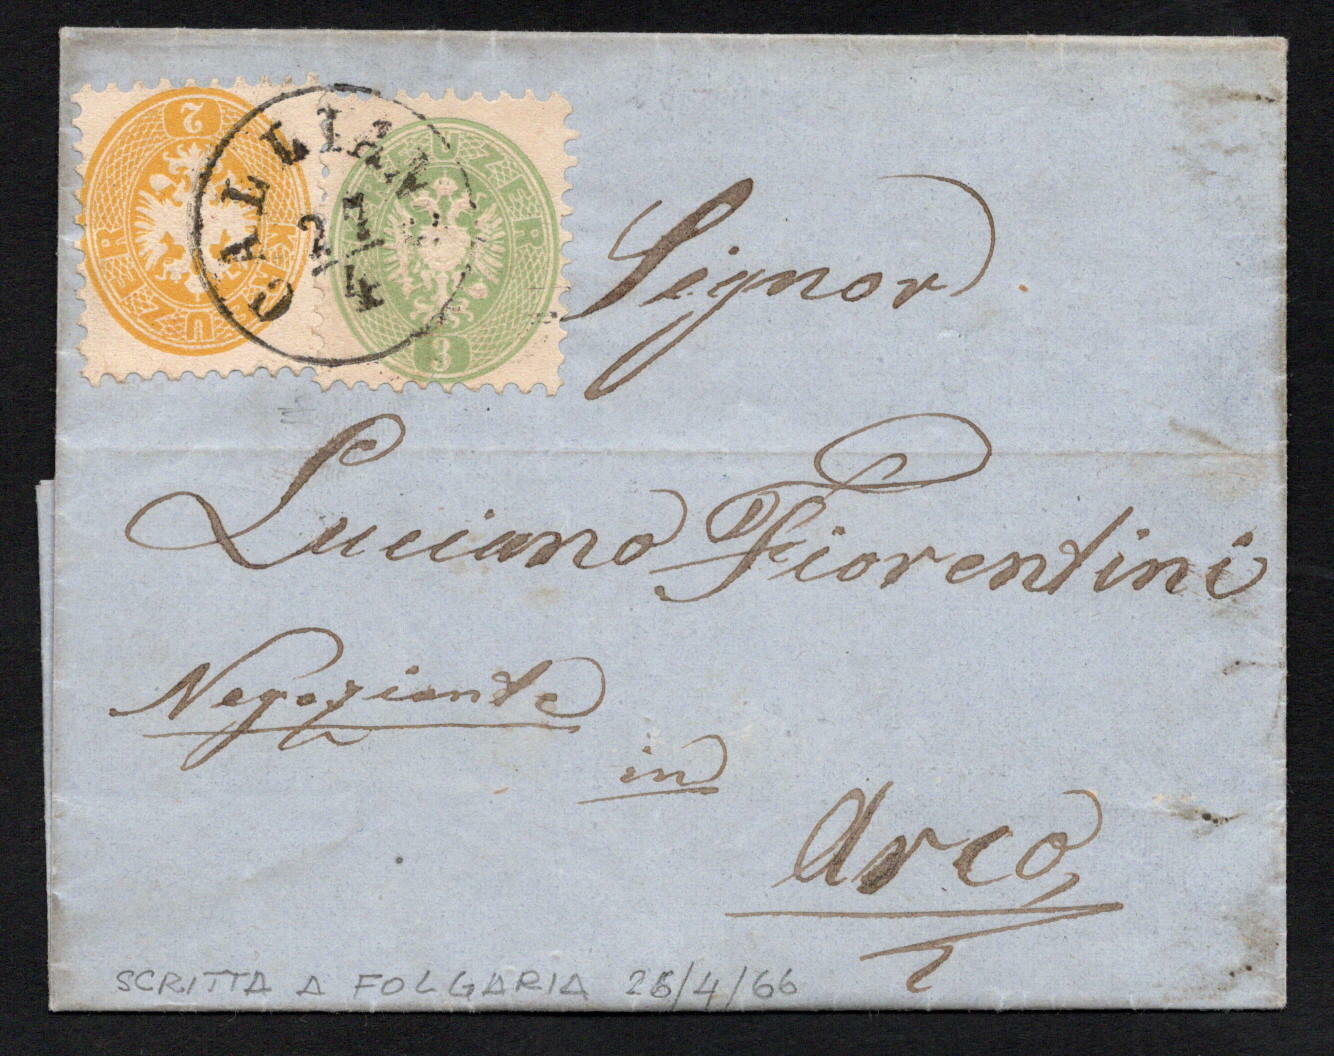 2
KREUZER
KREUZER
3
CALLIAN
27
4
Signor
Luciano Fiorentini
Negoziante
in
Arco
SCRITTA A FOLGARIA 26/4/66